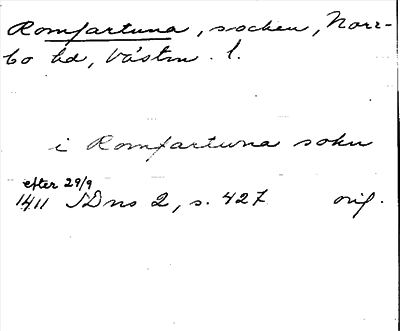 Romfartuna, socken, Norr-
bo hd, Västm. l.
i Romfartuna sokn
efter 29/9
1411 SDns 2, s. 427 orig.